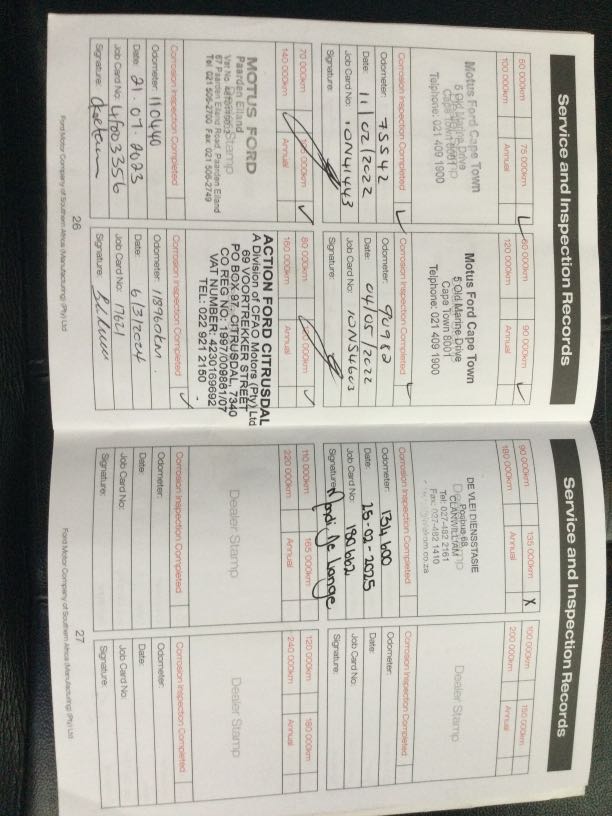 Service and Inspection Records
50 000km
75 000km
100 000km
Annual
Motus Ford Cape Town
5 Old Marine Drive
Cape Town 8001
Telphone: 021 409 1900
Corrosion Inspection Completed
Odometer: 75542
Date: 11/02/2022
Job Card No: 10N41443
Signature:
60 000km
90 000km
120 000km
Annual
Motus Ford Cape Town
5 Old Marine Drive
Cape Town 8001
Telphone: 021 409 1900
Corrosion Inspection Completed
Odometer: 90982
Date: 04/05/2022
Job Card No: 10N54603
Signature:
70 000km
140 000km
Annual
MOTUS FORD
Paarden Eiland
67 Paarden Eiland Road, Paarden Eiland
Tel: 021 506-2700 Fax: 021 506-2749
Corrosion Inspection Completed
Odometer: 110440
Date: 21.07.2023
Job Card No: 4F003356
Signature:
80 000km
160 000km
Annual
ACTION FORD CITRUSDAL
A Division of CFAO Motors (Pty) Ltd
69 VOORTREKKER STREET
PO BOX 97, CITRUSDAL, 7340
CO REG NO: 1997/009881/07
VAT NUMBER: 4230169692
TEL: 022 921 2150
Corrosion Inspection Completed
Odometer: 118960km.
Date: 6/3/2024
Job Card No: 17621
Signature:
Ford Motor Company of Southern Africa (Manufacturing) (Pty) Ltd
26
Service and Inspection Records
90 000km
135 000km
X
180 000km
Annual
DE VLEI DIENSSTASIE
Posbus 68
CLANWILLIAM
Tel: 027-482 2161
Fax: 027-482 1410
Corrosion Inspection Completed
Odometer: 134 600
Date: 25-02-2025
Job Card No: 180662
Signature:
100 000km
150 000km
200 000km
Annual
Dealer Stamp
Corrosion Inspection Completed
Odometer:
Date:
Job Card No:
Signature:
110 000km
165 000km
220 000km
Annual
Dealer Stamp
Corrosion Inspection Completed
Odometer:
Date:
Job Card No:
Signature:
120 000km
180 000km
240 000km
Annual
Dealer Stamp
Corrosion Inspection Completed
Odometer:
Date:
Job Card No:
Signature:
Ford Motor Company of Southern Africa (Manufacturing) (Pty) Ltd
27